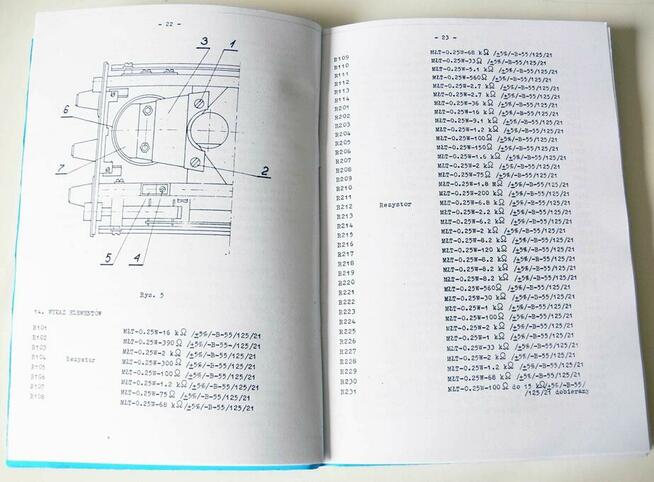 - 22 -
3
1
6
7
2
5
4
Rys. 5
14. WYKAZ ELEMENTÓW
R101 MŁT-0.25W-16 kΩ /±5%/-B-55/125/21
R102 MŁT-0.25W-390Ω /±5%/-B-55/125/21
R103 MŁT-0.25W-2 kΩ /±5%/-B-55/125/21
R104 Rezystor MŁT-0.25W-300Ω /±5%/-B-55/125/21
R105 MŁT-0.25W-100Ω /±5%/-B-55/125/21
R106 MŁT-0.25W-1.2 kΩ /±5%/-B-55/125/21
R107 MŁT-0.25W-75Ω /±5%/-B-55/125/21
R108 MŁT-0.25W-68 kΩ /±5%/-B-55/125/21
- 23 -
R109 MŁT-0.25W-68 kΩ /±5%/-B-55/125/21
R110 MŁT-0.25W-33Ω /±5%/-B-55/125/21
R111 MŁT-0.25W-5.1 kΩ /±5%/-B-55/125/21
R112 MŁT-0.25W-560Ω /±5%/-B-55/125/21
R113 MŁT-0.25W-2.7 kΩ /±5%/-B-55/125/21
R114 MŁT-0.25W-2.7 kΩ /±5%/-B-55/125/21
R201 MŁT-0.25W-36 kΩ /±5%/-B-55/125/21
R202 MŁT-0.25W-16 kΩ /±5%/-B-55/125/21
R203 MŁT-0.25W-9.1 kΩ /±5%/-B-55/125/21
R204 MŁT-0.25W-1.2 kΩ /±5%/-B-55/125/21
R205 MŁT-0.25W-100Ω /±5%/-B-55/125/21
R206 MŁT-0.25W-150Ω /±5%/-B-55/125/21
R207 MŁT-0.25W-1.6 kΩ /±5%/-B-55/125/21
R208 MŁT-0.25W-2 kΩ /±5%/-B-55/125/21
R209 MŁT-0.25W-75Ω /±5%/-B-55/125/21
R210 MŁT-0.25W-1.8 MΩ /±5%/-B-55/125/21
R211 MŁT-0.25W-200 kΩ /±5%/-B-55/125/21
R212 Rezystor MŁT-0.25W-6.8 kΩ /±5%/-B-55/125/21
R213 MŁT-0.25W-2.2 kΩ /±5%/-B-55/125/21
R214 MŁT-0.25W-6.2 kΩ /±5%/-B-55/125/21
R215 MŁT-0.25W-2 kΩ /±5%/-B-55/125/21
R216 MŁT-0.25W-8.2 kΩ /±5%/-B-55/125/21
R217 MŁT-0.25W-120 kΩ /±5%/-B-55/125/21
R218 MŁT-0.25W-8.2 kΩ /±5%/-B-55/125/21
R219 MŁT-0.25W-8.2 kΩ /±5%/-B-55/125/21
R220 MŁT-0.25W-8.2 kΩ /±5%/-B-55/125/21
R221 MŁT-0.25W-560Ω /±5%/-B-55/125/21
R222 MŁT-0.25W-30 kΩ /±5%/-B-55/125/21
R223 MŁT-0.25W-1 kΩ /±5%/-B-55/125/21
R224 MŁT-0.25W-100Ω /±5%/-B-55/125/21
R225 MŁT-0.25W-2 kΩ /±5%/-B-55/125/21
R226 MŁT-0.25W-1 kΩ /±5%/-B-55/125/21
R227 MŁT-0.25W-33 kΩ /±5%/-B-55/125/21
R228 MŁT-0.25W-2 kΩ /±5%/-B-55/125/21
R229 MŁT-0.25W-1.2 kΩ /±5%/-B-55/125/21
R230 MŁT-0.25W-68 kΩ /±5%/-B-55/125/21
R231 MŁT-0.25W-100Ω do 15 kΩ/±5%/-B-55/
/125/21 dobierany